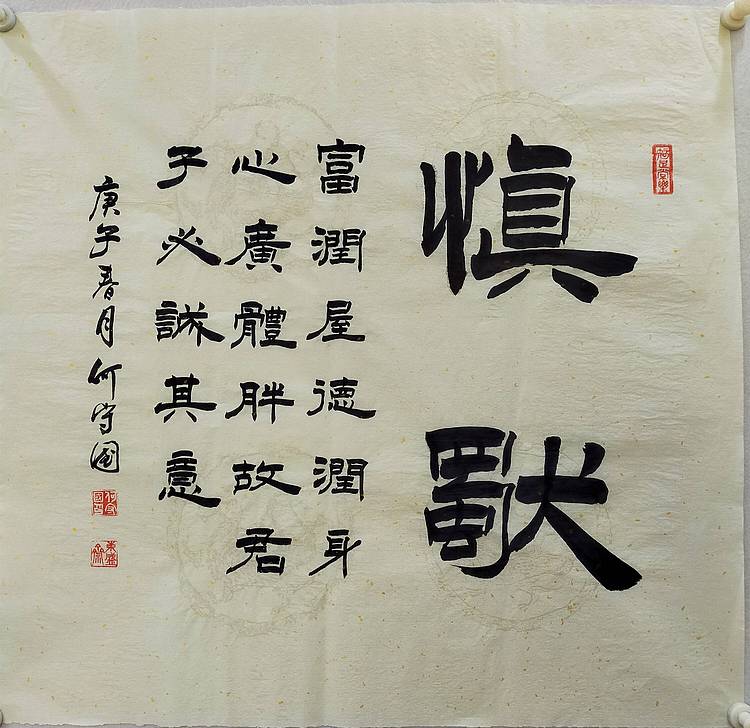 慎獨
富潤屋德潤身
心廣體胖故君
子必誠其意
庚子春月何守國
何守國印